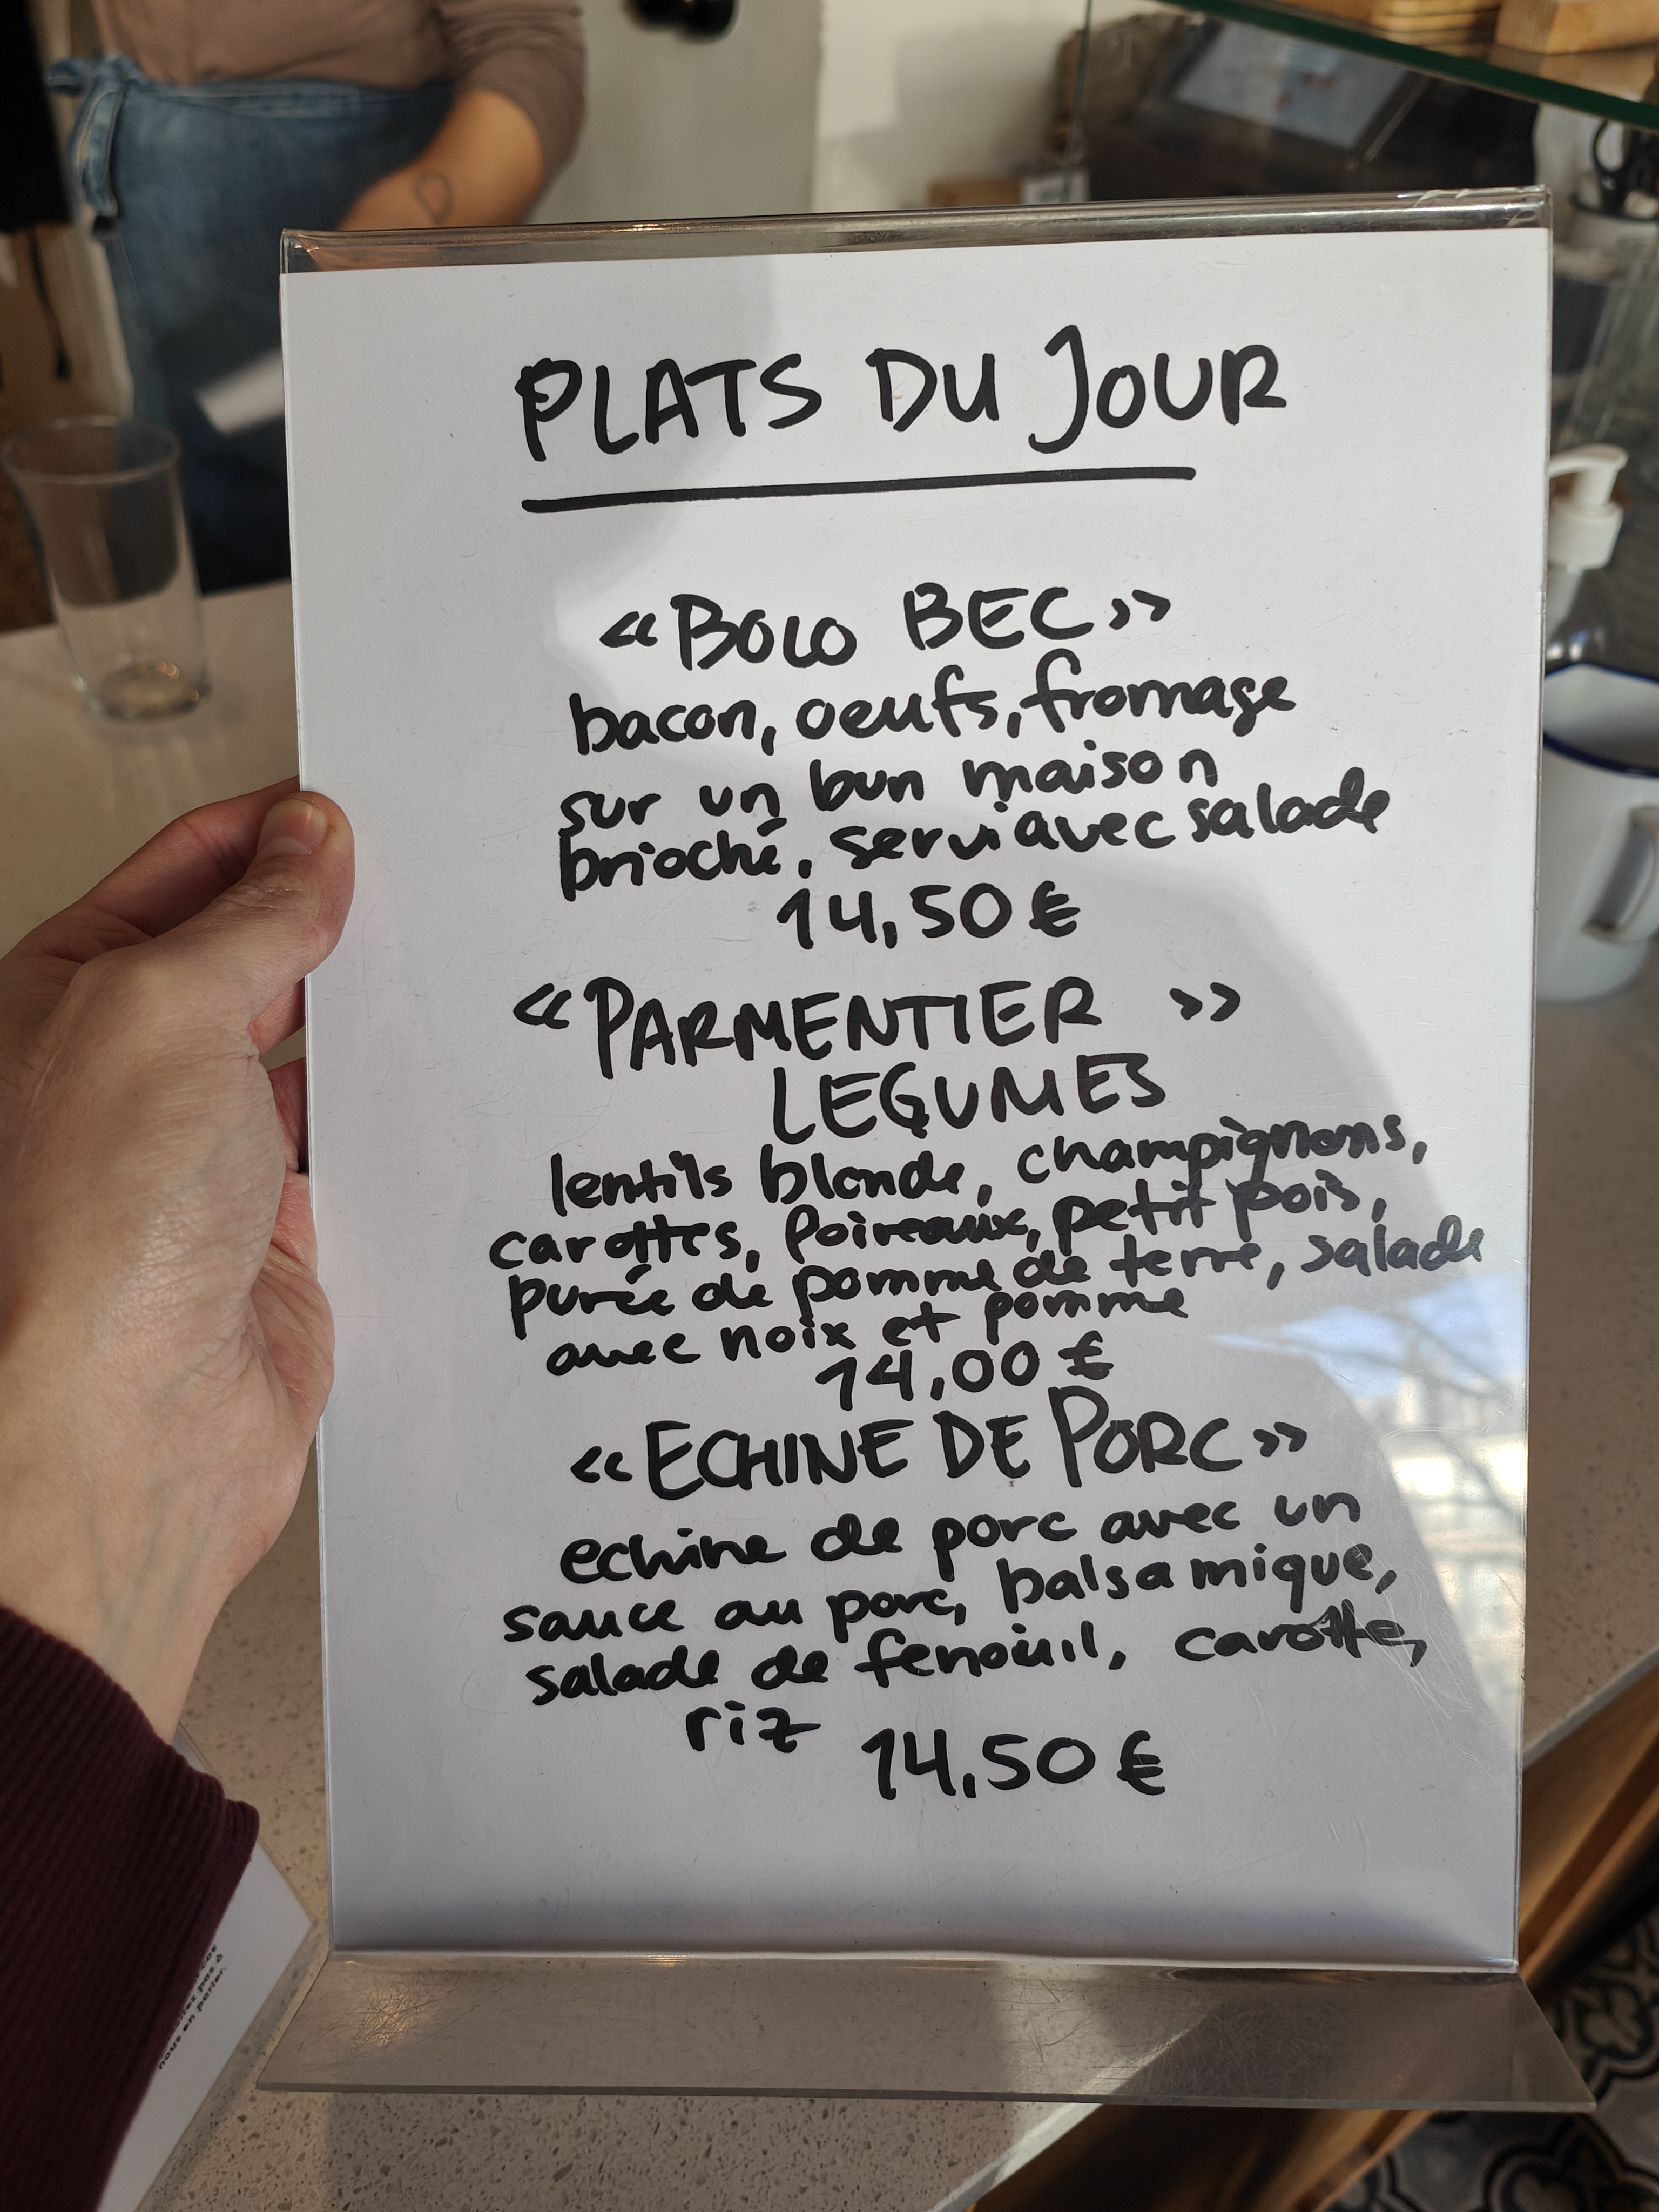 PLATS DU JOUR
« BOLO BEC »
bacon, oeufs, fromage
sur un bun maison
brioché, servi avec salade
14,50 €
« PARMENTIER »
LEGUMES
lentils blonde, champignons,
carottes, Poireaux, petit pois,
purée de pomme de terre, salade
avec noix et pomme
14,00 €
« ECHINE DE PORC »
echine de porc avec un
sauce au porc, balsamique,
salade de fenouil, carotte,
riz 14,50 €
nous en parler.